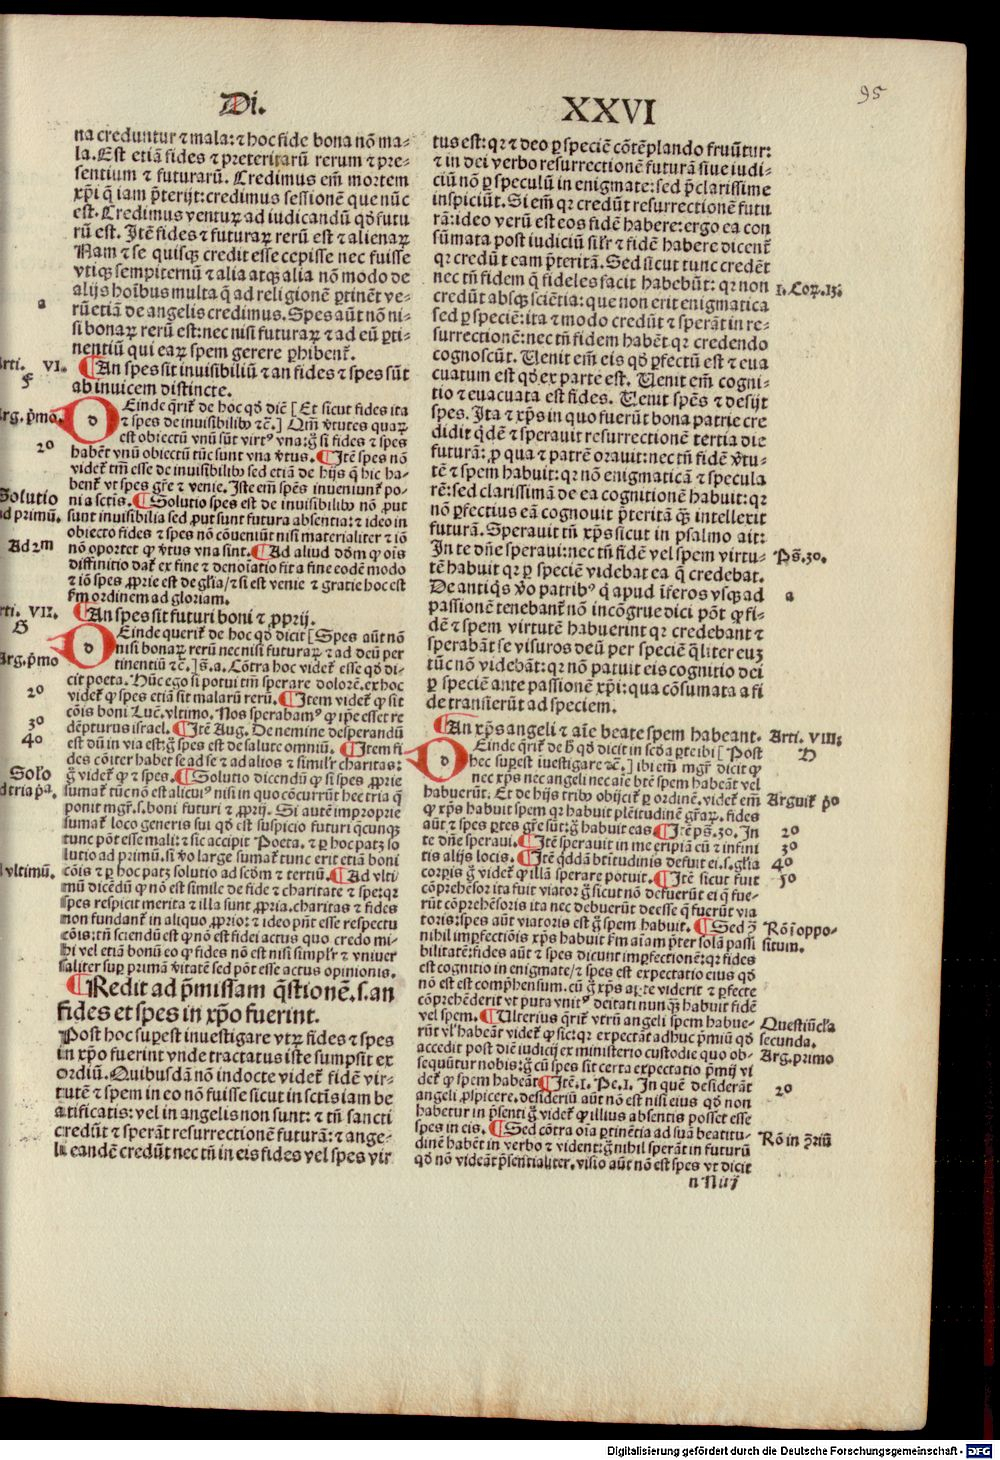 95
Di. XXVI
na creduntur ⁊ mala: ⁊ hoc fide bona nõ ma⸗
la. Est etiã fides ⁊ preteritarũ rerum ⁊ pre⸗
sentium ⁊ futurarũ. Credimus em̃ mortem
xp̃i q̃ iam p̃terijt: credimus sessionẽ que nũc
est. Credimus venturꝝ ad iudicandũ qđ futu
rũ est. Itẽ fides ⁊ futuraꝝ rerũ est ⁊ alienaꝝ
Nam ⁊ se quisqꝫ credit esse cepisse nec fuisse
vtiqꝫ sempiternũ ⁊ alia atqꝫ alia nõ modo de
alijs hoĩbus multa q̃ ad religionẽ ꝑtinẽt ve⸗
rũ etiã de angelis credimus. Spes aũt nõ ni⸗
a
si bonaꝝ rerũ est: nec nisi futuraꝝ ⁊ ad eũ ꝑti⸗
nentiũ qui eaꝝ spem gerere ꝑhibent̃.
rti. VI.
f
¶ An spes sit inuisibiliũ ⁊ an fides ⁊ spes sũt
ab inuicem distincte.
rg. p̃mo.
DEinde q̃rit̃ de hoc qđ diẽ [Et sicut fides ita
⁊ spes de inuisibilibꝰ ⁊c̃.] Qm̃ ṽtutes quaꝝ
est obiectũ vnũ sũt virtꝰ vna: g̃ si fides ⁊ spes
2o
habẽt vnũ obiectũ tũc sunt vna ṽtus. ¶ Itẽ spes nõ
videt̃ tm̃ esse de inuisibilibꝰ sed etiã de hijs q̃ hic ha⸗
bent̃ vt spes gr̃e ⁊ venie. Iste em̃ spẽs inueniunt̃ po⸗
Solutio
nia sctis. ¶ Solutio spes est de inuisibilibꝰ nõ ꝓut
d primũ.
sunt inuisibilia sed ꝓut sunt futura absentia: ⁊ ideo in
obiecto fides ⁊ spes nõ cõueniũt nisi materialiter ⁊ iõ
Ad 2m
nõ oportet ꝙ ṽtus vna sint. ¶ Ad aliud dõm ꝙ oĩs
diffinitio dat̃ ex fine ⁊ denoĩatio fit a fine eodẽ modo
⁊ iõ spes ꝓprie est de gl̃ia/ ⁊ si est venie ⁊ gratie hoc est
f̃m ordinem ad gloriam.
rti. VII.
G
¶ An spes sit futuri boni ⁊ ꝓprij.
DEinde querit̃ de hoc qđ dicit [Spes aũt nõ
nisi bonaꝝ rerũ nec nisi futuraꝝ ⁊ ad deũ per
Arg. p̃mo
tinentiũ ⁊c̃.] s̃. a. Cõtra hoc videt̃ esse qđ di⸗
cit poeta. Hũc ego si potui tm̃ sperare dolorẽ. ex hoc
2o
videt̃ ꝙ spes etiã sit malarũ rerũ. ¶ Item videt̃ ꝙ sit
cõis boni Luc̃. vltimo. Nos sperabamꝰ ꝙ ip̃e esset re
3o
dẽpturus israel. ¶ Itẽ Aug. De nemine desperandũ
4o
est dũ in via est: g̃ spes est de salute omniũ. ¶ Item fi
des cõiter habet se ad se ⁊ ad alios ⁊ similr̃ charitas:
Solo
g̃ videt̃ ꝙ ⁊ spes. ¶ Solutio dicendũ ꝙ si spes ꝓprie
d tria p̃a.
sumat̃ tũc nõ est alicuiꝰ nisi in quo cõcurrũt hec tria q̃
ponit mgr̃. s. boni futuri ⁊ ꝓprij. Si autẽ improprie
sumat̃ loco generis sui qđ est suspicio futuri q̃cunqꝫ
tunc põt esse mali: ⁊ sic accipit Poeta. ⁊ ꝑ hoc patꝫ so
lutio ad primũ. si ṽo large sumat̃ tunc erit etiã boni
cõis ⁊ ꝑ hoc patꝫ solutio ad scđm ⁊ tertiũ. ¶ Ad vlti
l vltimũ.
mũ dicẽdũ ꝙ nõ est simile de fide ⁊ charitate ⁊ spe: qꝛ
spes respicit merita ⁊ illa sunt ꝓpria. charitas ⁊ fides
non fundant̃ in aliquo ꝓprio: ⁊ ideo pñt esse respectu
cõis: tñ sciendũ est ꝙ nõ est fidei actus quo credo mi⸗
hi vel etiã bonũ eo ꝙ fides nõ est nisi simplr̃ ⁊ vniuer
saliter suꝑ primã ṽitatẽ sed põt esse actus opinionis.
¶ Redit ad p̃missam q̃stionẽ. s. an
fides et spes in xp̃o fuerint.
Post hoc suꝑest inuestigare vtꝝ fides ⁊ spes
in xp̃o fuerint vnde tractatus iste sumpsit ex
ordiũ. Quibusdã nõ indocte videt̃ fidẽ vir⸗
tutẽ ⁊ spem in eo nõ fuisse sicut in sctis iam be
atificatis: vel in angelis non sunt: ⁊ tñ sancti
credũt ⁊ sperãt resurrectionẽ futurã: ⁊ ange⸗
li eandẽ credũt nec tñ in eis fides vel spes vir
tus est: qꝛ ⁊ deo ꝑ speciẽ cõtẽplando fruũtur:
⁊ in dei verbo resurrectionẽ futurã siue iudi⸗
ciũ nõ ꝑ speculũ in enigmate: sed p̃clarissime
inspiciũt. Si em̃ qꝛ credũt resurrectionẽ futu
rã: ideo verũ est eos fidẽ habere: ergo ea con
sũmata post iudiciũ silr̃ ⁊ fidẽ habere dicent̃
qꝛ credũt eam p̃teritã. Sed sicut tunc credẽt
nec tñ fidem q̃ fideles facit habebũt: qꝛ non
1. Coꝝ. 13.
credũt absqꝫ sciẽtia: que non erit enigmatica
sed ꝑ speciẽ: ita ⁊ modo credũt ⁊ sperãt in re⸗
surrectionẽ: nec tñ fidem habẽt qꝛ credendo
cognoscũt. Uenit em̃ eis qđ ꝑfectũ est ⁊ eua
cuatum est qđ ex parte est. Uenit em̃ cogni⸗
tio ⁊ euacuata est fides. Uenit spẽs ⁊ desijt
spes. Ita ⁊ xp̃s in quo fuerũt bona patrie cre
didit qđẽ ⁊ sperauit resurrectionẽ tertia die
futurã: ꝓ qua ⁊ patrẽ orauit: nec tñ fidẽ ṽtu⸗
tẽ ⁊ spem habuit: qꝛ nõ enigmaticã ⁊ specula
rẽ: sed clarissimã de ea cognitionẽ habuit: qꝛ
nõ ꝑfectius eã cognouit p̃teritã q̃ꝫ intellexit
futurã. Sperauit tñ xp̃s sicut in psalmo ait:
In te dñe speraui: nec tñ fidẽ vel spem virtu⸗
Ps̃. 30.
tẽ habuit qꝛ ꝑ speciẽ videbat ea q̃ credebat.
De antiq̃s ṽo patribꝰ q̃ apud ĩferos vsqꝫ ad
a
passionẽ tenebant̃ nõ incõgrue dici põt ꝙ fi⸗
dẽ ⁊ spem virtutẽ habuerint qꝛ credebant ⁊
sperabãt se visuros deũ per speciẽ q̃liter euꝫ
tũc nõ videbãt: qꝛ nõ patuit eis cognitio dei
ꝑ speciẽ ante passionẽ xp̃i: qua cõsumata a fi
de transierũt ad speciem.
¶ An xp̃s angeli ⁊ aĩe beate spem habeant.
Arti. VIII.
H
DEinde q̃rit̃ de h̃ qđ dicit in sc̃đa ꝑte ibi [Post
hec suꝑest ĩuestigare ⁊c̃.] ibi em̃ mgr̃ dicit ꝙ
nec xp̃s nec angeli nec aĩe bt̃e spem habeãt vel
habuerũt. Et de hijs tribꝰ obijcit̃ ꝑ ordinẽ. videt̃ em̃
Arguit̃ p̃o
ꝙ xp̃s habuit spem qꝛ habuit plẽitudinẽ gr̃aꝝ. fides
aũt ⁊ spes ꝑtes gr̃e sũt: g̃ habuit eas ¶ Itẽ ps̃. 30. In
2o
te dñe speraui. ¶ Itẽ sperauit in me eripiã eũ ⁊ infini
3o
tis alijs locis. ¶ Itẽ q̃ddã btitudinis defuit ei. s. gl̃ia
4o
corꝑis g̃ videt̃ ꝙ illã sperare potuit. ¶ Itẽ sicut fuit
5o
cõprehẽsor ita fuit viator g̃ sicut nõ defuerũt ei q̃ fue⸗
rũt cõprehẽsoris ita nec debuerũt deesse q̃ fuerũt via
toris: spes aũt viatoris est g̃ spem habuit. ¶ Sed ↄ̃
Rõ ĩ oppo⸗
situm.
nihil imꝑfectiõis xp̃s habuit f̃m aĩam p̃ter solã passi
bilitatẽ: fides aũt ⁊ spes dicunt imꝑfectionẽ: qꝛ fides
est cognitio in enigmate/ ⁊ spes est expectatio eius qđ
nõ est est comp̃hensum. cũ g̃ xp̃s aꝑte viderit ⁊ ꝑfecte
cõprehẽderit vt puta vnitꝰ deitati nunqꝫ habuit fidẽ
vel spem. ¶ Ulterius q̃rit̃ vtrũ angeli spem habue⸗
Questiũcl̃a
secunda.
rũt vl̃ habeãt videt̃ ꝙ sic: qꝛ expectãt adhuc p̃miũ qđ
accedit post diẽ iudicij ex ministerio custodie quo ob⸗
Arg. primo
sequũtur nobis: g̃ cũ spes sit certa expectatio p̃mij vi
det̃ ꝙ spem habeãt ¶ Itẽ. 1. Pe. 1. In quẽ desiderãt
2o
angeli ꝓspicere. desideriũ aũt nõ est nisi eius qđ non
habetur in p̃senti g̃ videt̃ ꝙ illius absentis posset esse
spes in eis. ¶ Sed cõtra oĩa ꝑtinẽtia ad suã beatitu⸗
Rõ in ↄ̃riũ
dinẽ habẽt in verbo ⁊ vident: g̃ nihil sperãt in futurũ
qđ nõ videãt p̃sentialiter. visio aũt nõ est spes vt dicit
n Nuj
Digitalisierung gefördert durch die Deutsche Forschungsgemeinschaft - DFG